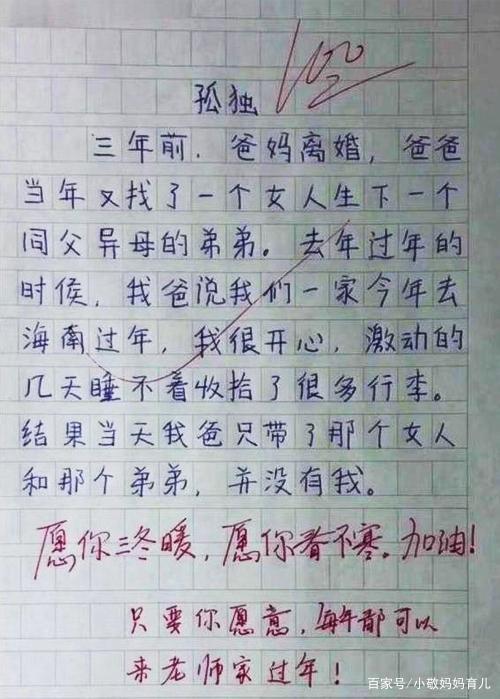 100
孤独
三年前.爸妈离婚,爸爸
当年又找了一个女人生下一个
同父异母的弟弟。去年过年的
时侯,我爸说我们一家今年去
海南过年,我很开心,激动的
几天睡不着收拾了很多行李。
结果当天我爸只带了那个女人
和那个弟弟,并没有我。
愿你三冬暖,愿你春不寒。加油!
只要你愿意,每年都可以
来老师家过年!
百家号/小敬妈妈育儿